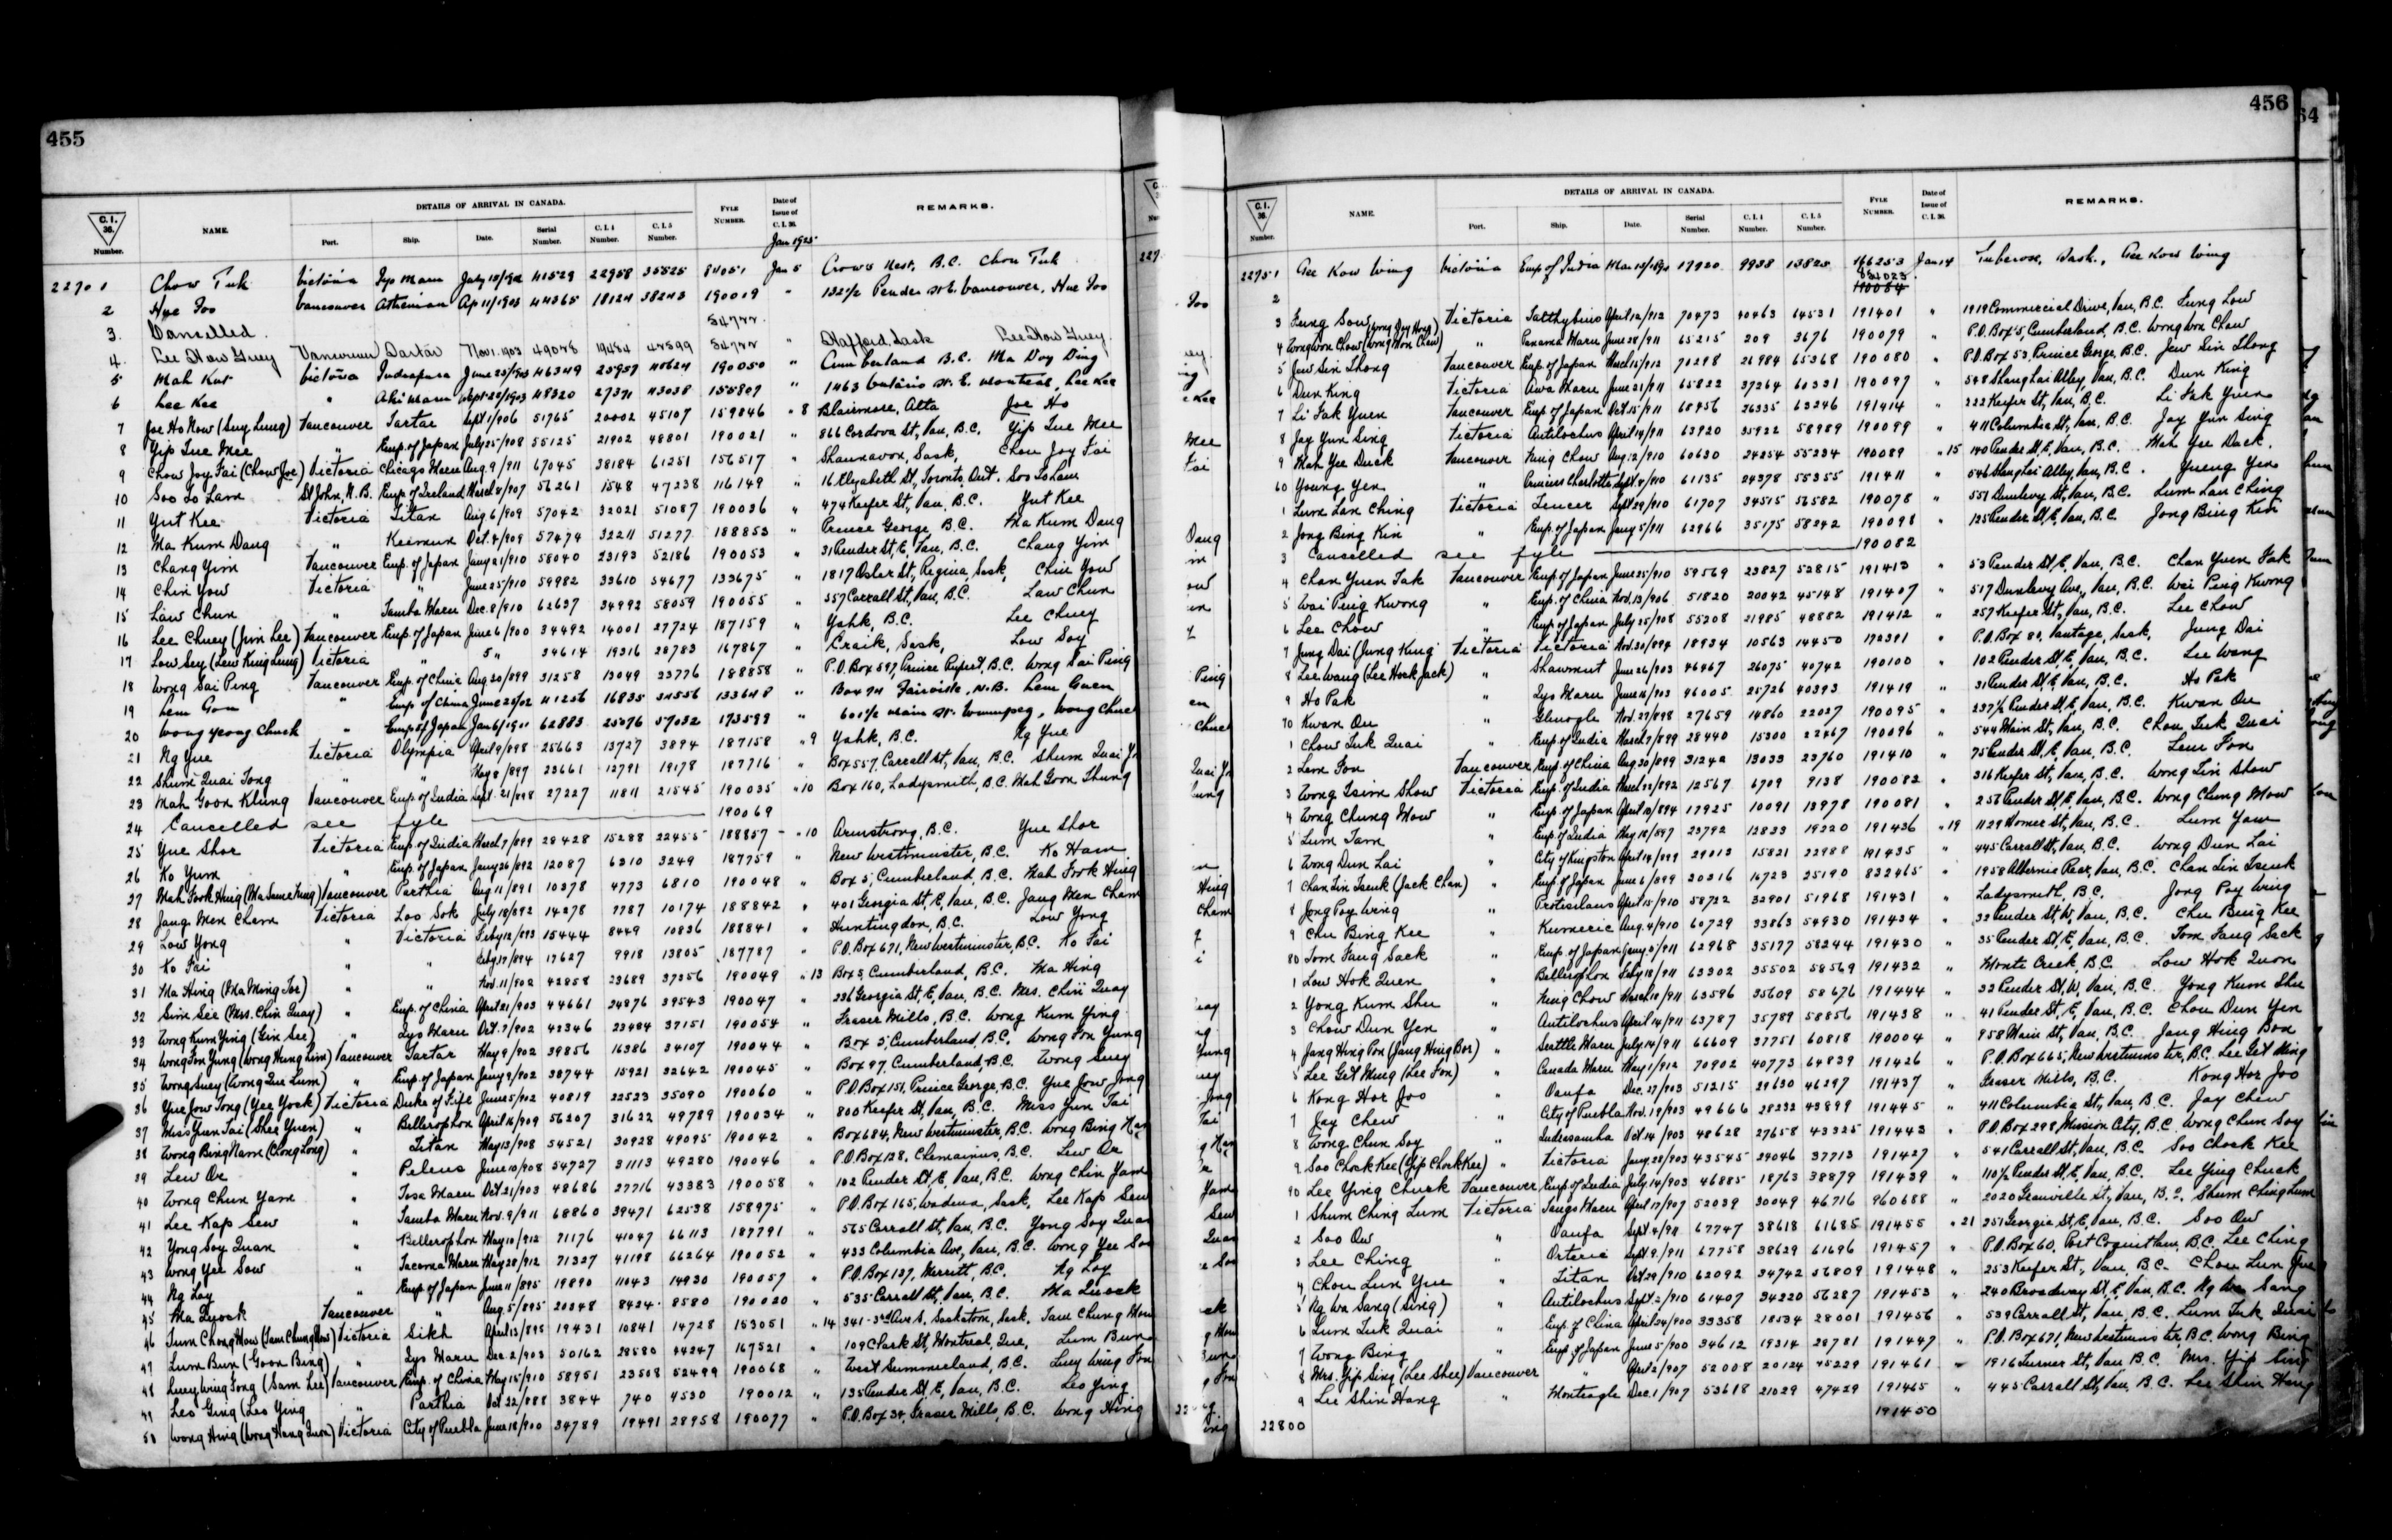 455
C.I. 36. Number. NAME. DETAILS OF ARRIVAL IN CANADA. Port. Ship. Date. Serial Number. C.I.4 Number. C.I.5 Number. FYLE NUMBER. Date of Issue of C.I.36. REMARKS.
Jan 1925
22701 Chow Tuk Victoria 41529 22958 35525 84051 Jan 5 Crow's Nest, B.C. Chow Tuk
2 Hue Foo Vancouver Athenian Ap 11/1903 44365 18124 38243 190019 " 132½ Pender St E. Vancouver, Hue Foo
3. Cancelled. 54722
4. Vancouver Tartar Nov 1. 1903 49028 54722 " Stafford, Sask
5 Mah Kut Victoria Indrapura June 23/903 46349 25957 40624 190050 " Cumberland B.C. Ma Doy Ding
6 Lee Kee " Aki Maru Sept 22/1903 48320 27371 43038 155807 " 1463 Ontario St. E. Montreal, Lee Kee
7 Joe Ho Now (Suey Lung) Vancouver Tartar Sept 1/906 51765 20002 45107 159846 " 8 Blairmore, Alta Joe Ho
8 Yip Lue Mee " Emp. of Japan July 25/908 55125 21902 48801 190021 " 866 Cordova St, Van, B.C. Yip Lue Mee
9 Chow Joy Fai (Chow Joe) Victoria Chicago Maru Aug. 9/911 67045 38184 61251 156517 " Shaunavon, Sask, Chow Joy Fai
10 Soo To Lam St John, N.B. Emp. of Ireland March 8/907 56261 1548 47238 116149 " 16 Elizabeth St, Toronto, Ont. Soo To Lam
11 Yut Kee Victoria Titan Aug. 6/909 57042 32021 51087 190036 " 474 Keefer St, Van, B.C. Yut Kee
12 Ma Kum Dang " Keemun Oct. 4/909 57474 32211 51277 188853 " Prince George, B.C. Ma Kum Dang
13 Chang Yim Vancouver Emp. of Japan Jany 21/910 58040 23193 52186 190053 " 31 Pender St, E, Van, B.C. Chang Yim
14 Chin Yow Victoria " June 25/910 59982 33610 54677 133675 " 1817 Osler St, Regina, Sask, Chin Yow
15 Law Chun " Tamba Maru Dec. 8/910 62637 34992 58059 190055 " 357 Carrall St, Van, B.C. Law Chun
16 Lee Chuey (Jim Lee) Vancouver Emp. of Japan June 6/900 34492 14001 27724 187159 " Yahk, B.C. Lee Chuey
17 Low Sey (Lew King Lung) Victoria " 5 " 34614 19316 28783 167867 " Craik, Sask, Low Soy
18 Wong Sai Ping Vancouver Emp. of China Aug 30/899 31258 13049 23776 188858 " P.O. Box 597, Prince Rupert, B.C. Wong Sai Ping
19 Lem Gon " Emp. of China June 25/02 41256 16835 34556 133648 "
20 Wong Yeong Chuck " Emp. of Japan Jan 6/1911 62883 25076 57032 173599 " 601½ Main St. Winnipeg, Wong Chuck
21 Ng Yue Victoria Olympia April 9/898 25663 13727 3894 187158 " 9 Yahk, B.C. Ng Yue
22 Shum Quai Tong " " May 8/897 23661 12791 19178 187716 " Box 557, Carrall St, Van, B.C. Shum Quai
23 Mah Goon Klung Vancouver Emp. of India Sept. 21/898 27227 11811 21545 190035 " 10 Box 160, Ladysmith, B.C.
24 Cancelled see fyle 190069
25 Yue Shor Victoria Emp. of India March 7/899 28428 15288 22455 188857 " 10 Armstrong, B.C. Yue Shor
26 Ko Yum " Emp. of Japan Jany 26/892 12087 6310 3249 187759 " New Westminster, B.C. Ko Ham
27 Mah Fook Hing Vancouver Parthia Aug 11/891 10378 4773 6810 190048 " Box 5, Cumberland, B.C. Mah Fook Hing
28 Jang Men Chem Victoria Loo Sok July 18/892 14278 7787 10174 188842 " 401 Georgia St, E, Van, B.C. Jang Men Cham
29 Low Yong " Victoria Feby 12/893 15444 8449 10836 188841 " Huntingdon, B.C. Low Yong
30 Ko Fai " " Feby 17/894 17627 9918 13805 187787 " P.O. Box 671, New Westminster, B.C. Ko Fai
31 Ma Hing (Ma Ming Tor) " " Nov. 11/902 42858 23689 37356 190049 " 13 Box 5, Cumberland, B.C. Ma Hing
32 Sim See (Mrs. Chin Quay) " Emp. of China April 21/903 44661 24876 39543 190047 " 236 Georgia St, E, Van, B.C. Mrs. Chin Quay
33 Wong Kum Ying (Gin See) " Lyo Maru Oct. 7/902 42346 23484 37151 190054 " Fraser Mills, B.C. Wong Kum Ying
34 Wong Fon Yung (Wong Hung Lim) Vancouver Tartar May 9/902 39856 16386 34107 190044 " Box 5, Cumberland, B.C. Wong Fon Yung
35 Wong Suey (Wong Lue Lum) " Emp. of Japan Jany 9/902 38744 15921 32642 190045 " Box 97, Cumberland, B.C. Wong Suey
36 Yue Jow Tong (Yee York) Victoria Duke of Fife June 5/902 40819 22523 35090 190060 " P.O. Box 151, Prince George, B.C. Yue Jow Jong
37 Miss Yuen Tai (Shee Yuen) " Bellerophon April 16/909 56207 31622 49789 190034 " 800 Keefer St, Van, B.C. Miss Yun Tai
38 Wong Bing Nam (Chong Long) " Titan May 13/908 54521 30928 49095 190042 " Box 684, New Westminster, B.C. Wong Bing Nam
39 Lew Oe " Peleus June 10/908 54727 31113 49280 190046 " P.O. Box 128, Chemainus, B.C. Lew Oe
40 Wong Chun Yam " Tosa Maru Oct 21/903 48686 27716 43383 190058 " 102 Pender St, E, Van, B.C. Wong Chin Yam
41 Lee Kap Sew " Tamba Maru Nov. 9/911 68860 39471 62538 158975 " P.O. Box 165, Wadena, Sask, Lee Kap Sew
42 Yong Soy Quan " Bellerophon May 10/912 71176 41047 66113 187791 " 565 Carrall St, Van, B.C. Yong Soy Quan
43 Wong Yee Sow " Tacoma Maru May 28/912 71327 41198 66264 190052 " 433 Columbia Ave, Van, B.C. Wong Yee Sow
44 Ng Loy " Emp. of Japan June 11/895 19890 11043 14930 190057 " P.O. Box 127, Merritt, B.C. Ng Loy
45 Ma Quock Vancouver " Aug. 5/895 20348 8424 8580 190020 " 535 Carrall St, Van, B.C. Ma Quock
46 Tum Chong How (Tam Chung How) Victoria Sikh April 13/895 19431 10841 14728 153051 " 14 341-3rd Ave S, Saskatoon, Sask, Tam Chung How
47 Lum Bun (Goon Bing) " Lyo Maru Dec. 2/903 50162 28580 44247 167521 " 109 Clark St, Montreal, Que, Lum Bun
48 Luey Wing Fong (Sam Lee) Vancouver Emp. of China May 15/910 58951 23508 52499 190068 " West Summerland, B.C. Luey Wing Fon
49 Leo Ging (Leo Ying " Parthia Oct 22/888 3844 740 4530 190012 " 135 Pender St, E, Van, B.C. Leo Ying
50 Wong Hing (Wong Hang Quon) Victoria City of Puebla June 18/900 34789 19491 28958 190077 " P.O. Box 34, Fraser Mills, B.C. Wong Hing
456
C.I. 36. Number. NAME. DETAILS OF ARRIVAL IN CANADA. Port. Ship. Date. Serial Number. C.I.4 Number. C.I.5 Number. FYLE NUMBER. Date of Issue of C.I.36. REMARKS.
22751 Gee Kow Wing Victoria Emp. of India 17920 9938 13825 166253 Jan 14 Tuberose, Sask., Gee Kow Wing
2 190084
3 Fung Sow Victoria Talthybius April 12/912 70473 40463 64531 191401 " 1919 Commercial Drive, Van, B.C. Fung Low
4 Wong Won Chow (Wong Mon Chew) " Panama Maru June 28/911 65215 209 3676 190079 " P.O. Box 5, Cumberland, B.C. Wong Won Chow
5 Jew Sin Thong Vancouver Emp. of Japan March 15/912 70298 26984 65368 190080 " P.O. Box 53, Prince George, B.C. Jew Sin Thong
6 Dun King Victoria Awa Maru June 21/911 65822 37264 60331 190097 " 548 Shanghai Alley, Van, B.C. Dun King
7 Li Fak Yuen Vancouver Emp. of Japan Oct. 15/911 68456 26335 63246 191414 " 222 Keefer St, Van, B.C. Li Fak Yuen
8 Jay Yun Sing Victoria Antilochus April 14/911 63920 35922 58989 190099 " 411 Columbia St, Van, B.C. Jay Yun Sing
9 Mah Yee Duck Vancouver Ning Chow Aug. 12/910 60630 24254 55234 190089 " 15 140 Pender St, E, Van, B.C. Mah Yee Dack.
60 Young Yen " Princess Charlotte Sept. 4/910 61135 24378 55355 191411 " 546 Shanghai Alley, Van, B.C. Yueng Yen
1 Lum Lan Ching Victoria Teucer Sept 29/910 61707 34515 56582 190078 " 551 Dunlevy St, Van, B.C. Lum Lan Ching
2 Jong Bing Kin " Emp. of Japan Jany 5/911 62966 35175 58242 190098 " 125 Pender St, E, Van, B.C. Jong Bing Kin
3 Cancelled see fyle 190082
4 Chan Yuen Fak Vancouver Emp. of Japan June 25/910 59569 23827 52815 191413 " 53 Pender St, E, Van, B.C. Chan Yuen Fak
5 Wai Ping Kwong " Emp. of China Nov. 13/906 51820 20042 45148 191407 " 517 Dunlevy Ave, Van, B.C. Wai Ping Kwong
6 Lee Chow " Emp. of Japan July 25/908 55208 21985 48882 191412 " 257 Keefer St, Van, B.C. Lee Chow
7 Jung Dai (Jung King Victoria Victoria Nov. 30/894 18934 10563 14450 170391 " P.O. Box 80, Vantage, Sask, Jung Dai
8 Lee Wang (Lee Hook Jack) " Shawmut June 26/903 46467 26075 40742 190100 " 102 Pender St, E, Van, B.C. Lee Wang
9 Ho Pak " Lyo Maru June 16/903 46005 25726 40393 191419 " 31 Pender St, E, Van, B.C. Ho Pak
70 Kwan On " Glenogle Nov. 27/898 27659 14860 22027 190095 " 237½ Pender St, E, Van, B.C. Kwan On
1 Chow Tuk Quai " Emp. of India March 7/899 28440 15300 22467 190096 " 544 Main St, Van, B.C. Chow Tuk Quai
2 Lem Fon Vancouver Emp. of China Aug. 30/899 31242 13033 23760 191410 " 75 Pender St, E, Van, B.C. Lem Fon
3 Wong Tsim Show Victoria Emp. of India March 22/892 12567 6709 9138 190082 " 316 Keefer St, Van, B.C. Wong Tin Show
4 Wong Chung Mow " Emp. of Japan April 10/894 17925 10091 13978 190081 " 256 Pender St, E, Van, B.C. Wong Chung Mow
5 Lum Tam " Emp. of India May 18/897 23792 12833 19220 191436 " 19 1129 Homer St, Van, B.C. Lum Yam
6 Wong Dun Lai " City of Kingston April 14/899 29013 15821 22988 191435 " 445 Carrall St, Van, B.C. Wong Dun Lai
7 Chan Lin Tseuk (Jack Chan) " Emp. of Japan June 6/899 30316 16723 25190 832465 " 1958 Albernie Rear, Van, B.C. Chan Lin Tseuk
8 Jong Poy Wing " Protesilaus April 15/910 58722 32901 51968 191431 " Ladysmith, B.C. Jong Poy Wing
9 Chu Bing Kee " Kumeric Aug. 4/910 60729 33863 54930 191424 " 33 Pender St, W, Van, B.C. Chu Bing Kee
80 Tom Fang Sack " Emp. of Japan Jany. 5/911 62968 35177 58244 191430 " 35 Pender St, E, Van, B.C. Tom Fang Sack
1 Low Hok Quen " Bellerophon Feby 18/911 63302 35502 58569 191432 " Monte Creek, B.C. Low Hok Quon
2 Yong Kum Shu " Ning Chow March 18/911 63596 35609 58676 191444 " 33 Pender St, W, Van, B.C. Yong Kum Shu
3 Chow Dun Yen " Antilochus April 14/911 63787 35789 58856 191438 " 41 Pender St, E, Van, B.C. Chow Dun Yen
4 Jang Hing Pon (Jang Hing Bor) " Seattle Maru July 14/911 66609 37751 60818 190004 " 958 Main St, Van, B.C. Jang Hing Bon
5 Lee Get Ming (Lee Fon) " Canada Maru May 1/912 70902 40773 64839 191426 " P.O. Box 665, New Westminster, B.C. Lee Get Ming
6 Kong Hor Joo " Oanfa Dec. 27/903 51215 29630 46297 191437 " Fraser Mills, B.C. Kong Hor Joo
7 Jay Chew " City of Puebla Nov. 19/903 49666 28232 43899 191445 " 411 Columbia St, Van, B.C. Jay Chew
8 Wong Chun Soy " Indrasamha Oct. 14/903 48628 27658 43325 191443 " P.O. Box 298, Mission City, B.C. Wong Chun Soy
9 Soo Chock Kee (Yip Chock Kee) " Victoria Jany. 28/903 43545 24046 37713 191427 " 541 Carrall St, Van, B.C. Soo Chock Kee
90 Lee Ying Chuck Vancouver Emp. of India July 14/903 46885 18763 38879 191439 " 110½ Pender St, E, Van, B.C. Lee Ying Chuck
1 Shum Ching Lum Victoria Tango Maru April 17/907 52039 30049 46716 960688 " 2020 Granville St, Van, B.C. Shum Ching Lum
2 Soo Ow " Oanfa Sept. 4/911 67747 38618 61685 191455 " 21 251 Georgia St, E, Van, B.C. Soo Ow
3 Lee Ching " Osteria Sept. 9/911 67758 38629 61696 191457 " P.O. Box 60, Port Coquitlam, B.C. Lee Ching
4 Chou Lun Yue " Titan Oct 29/910 62092 34742 56809 191448 " 253 Keefer St, Van, B.C. Chou Lun Yue
5 Ng We Sang (Sing) " Antilochus Sept. 2/910 61407 34220 56287 191453 " 240 Broadway St, E, Van, B.C. Ng We Sang
6 Lum Tuk Quai " Emp. of China April 24/900 33358 18534 28001 191456 " 539 Carrall St, Van, B.C. Lum Tuk Quai
7 Wong Bing " Emp. of Japan June 5/900 34612 19314 28781 191447 " P.O. Box 671, New Westminster, B.C. Wong Bing
8 Mrs. Yip Sing (Lee Shee) Vancouver " April 2/907 52008 20124 45229 191461 " 1916 Turner St, Van, B.C. Mrs. Yip Sing
9 Lee Shin Hang " Monteagle Dec. 1/907 53618 21029 47429 191465 " 445 Carrall St, Van, B.C. Lee Shin Hang
22800 191450